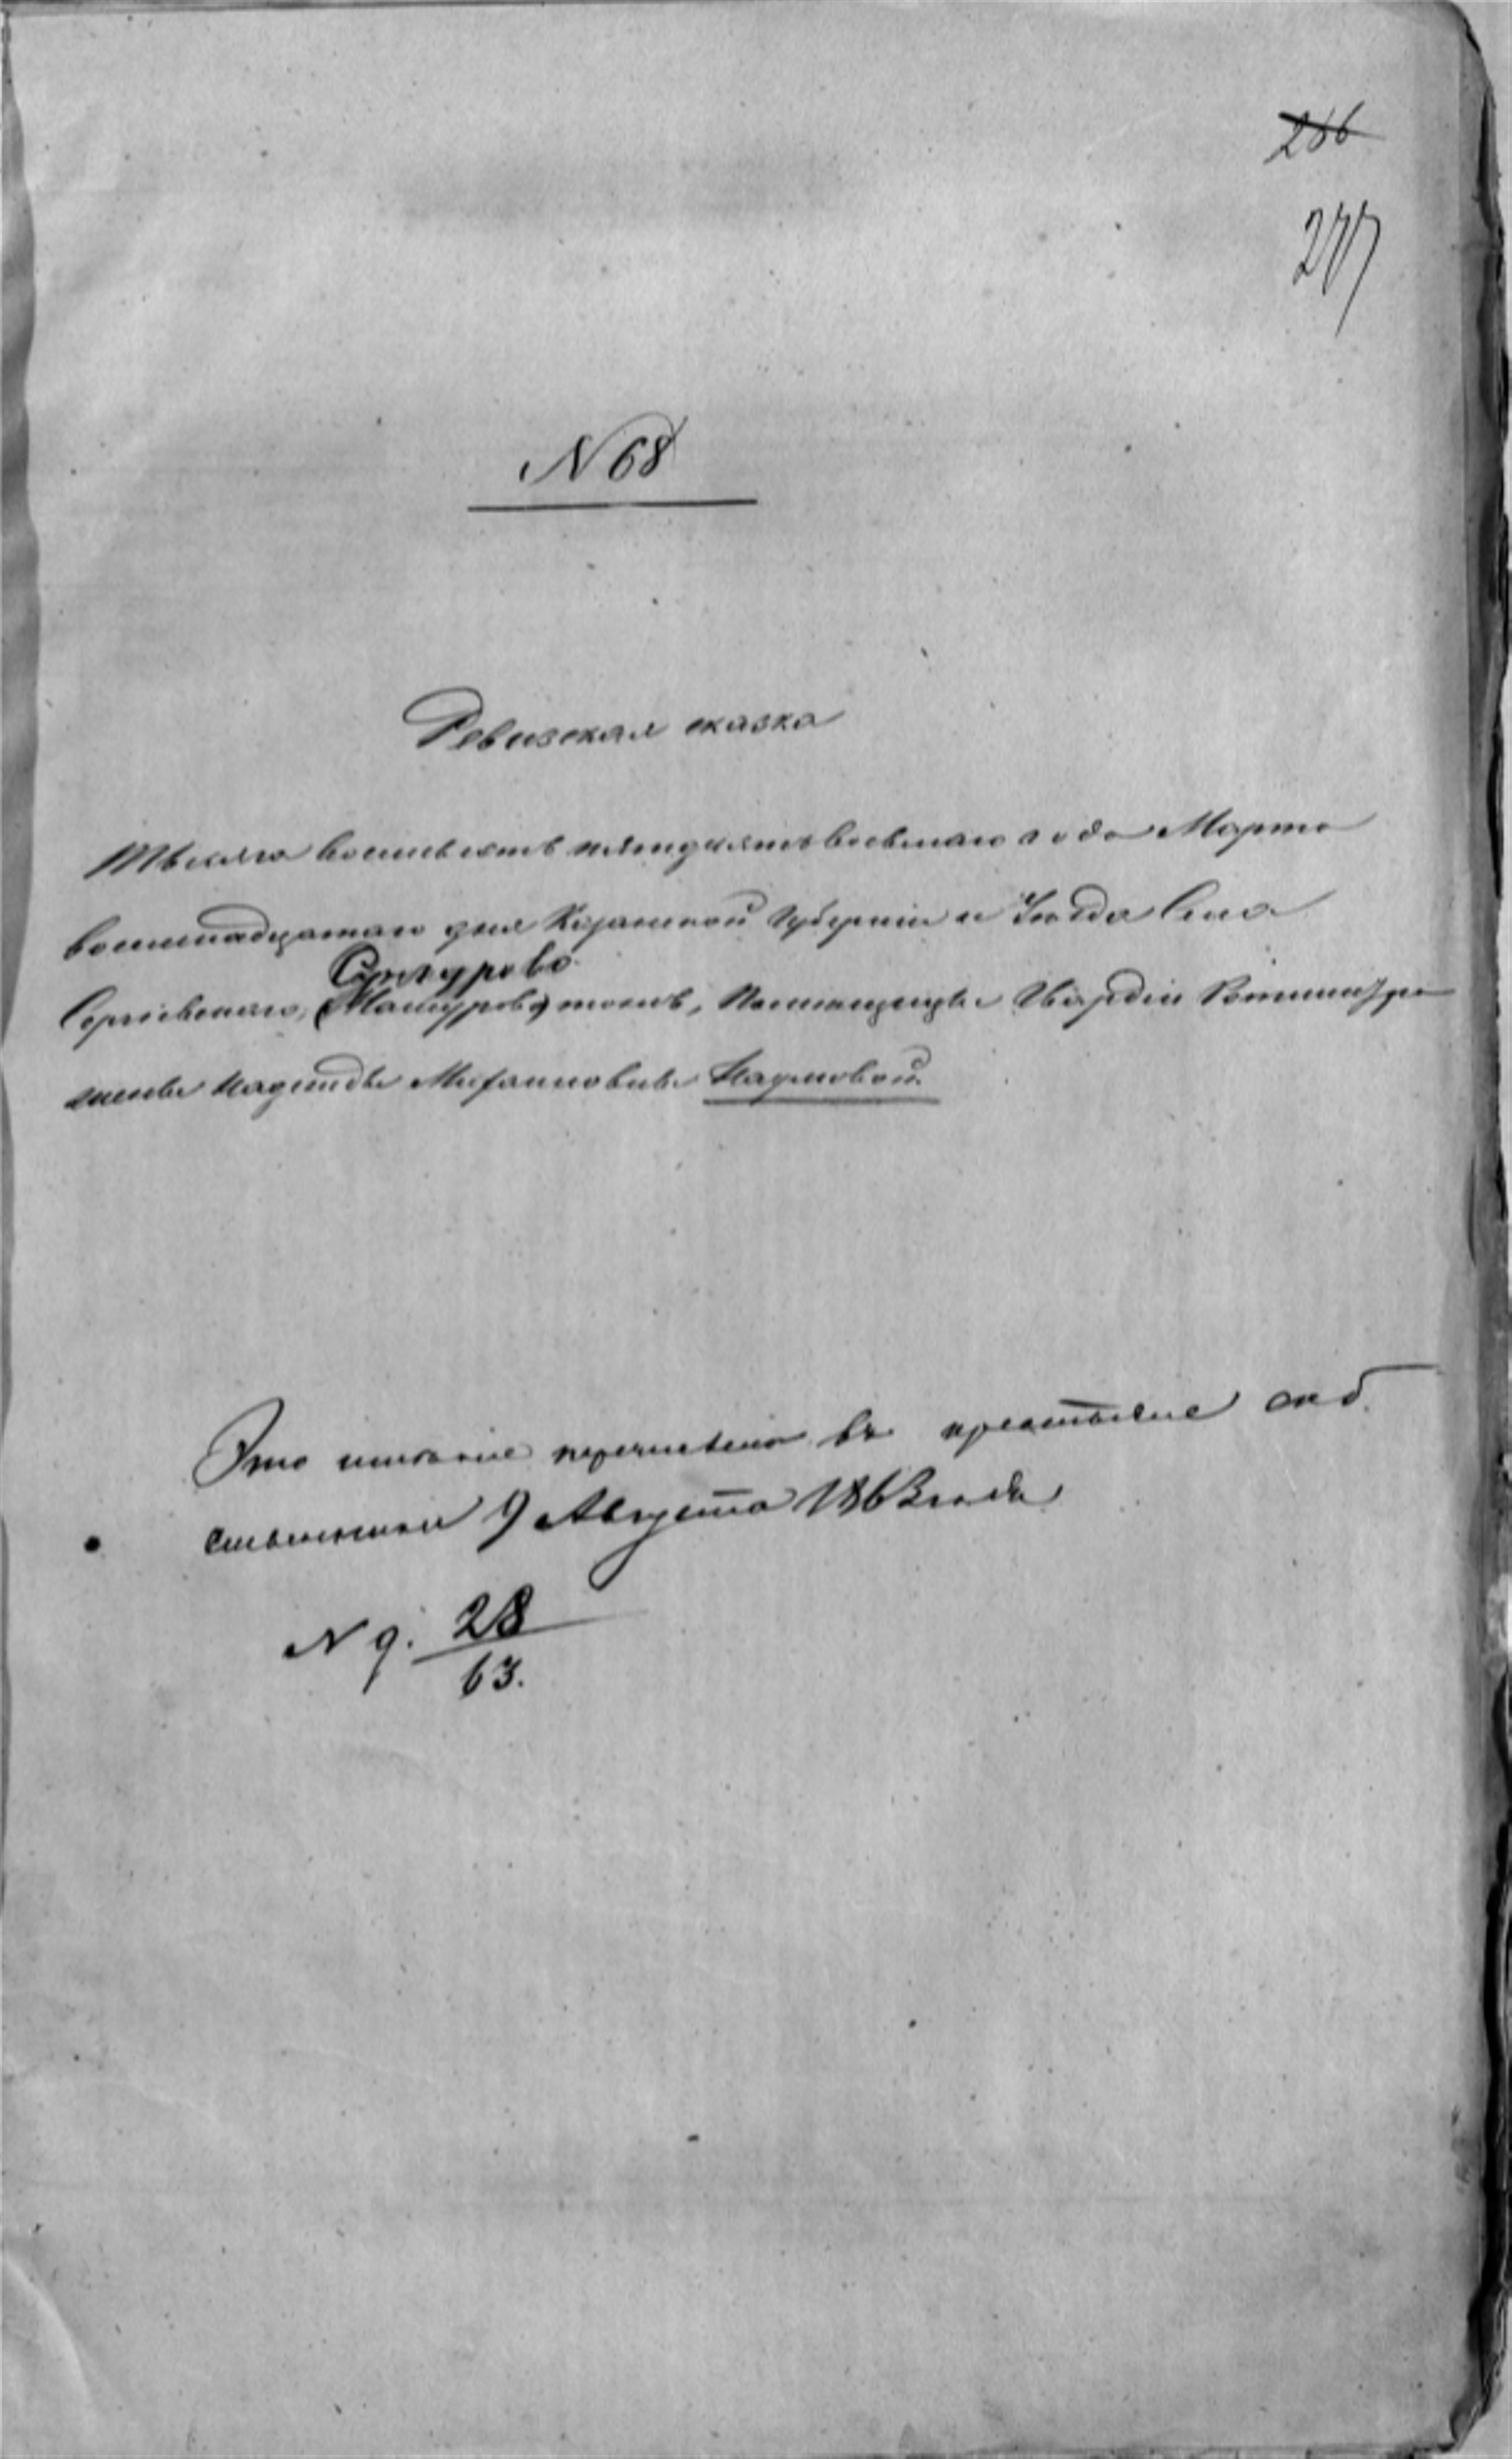 286
277
N 68
Ревизская сказка
Тысяча восемьсотъ пятьдесятъ восьмаго года Марта
восемнадцатаго дня Казанской Губерніи и Уѣзда Села
Сергіевскаго, Мансурово тожъ, Помѣщицы Гвардіи Ротмистр
Надеждѣ Михайловнѣ Наумовой
Это имѣніе перечислено въ крестьяне соб
ственники 9 Августа 1863 года
N д. 28
63.